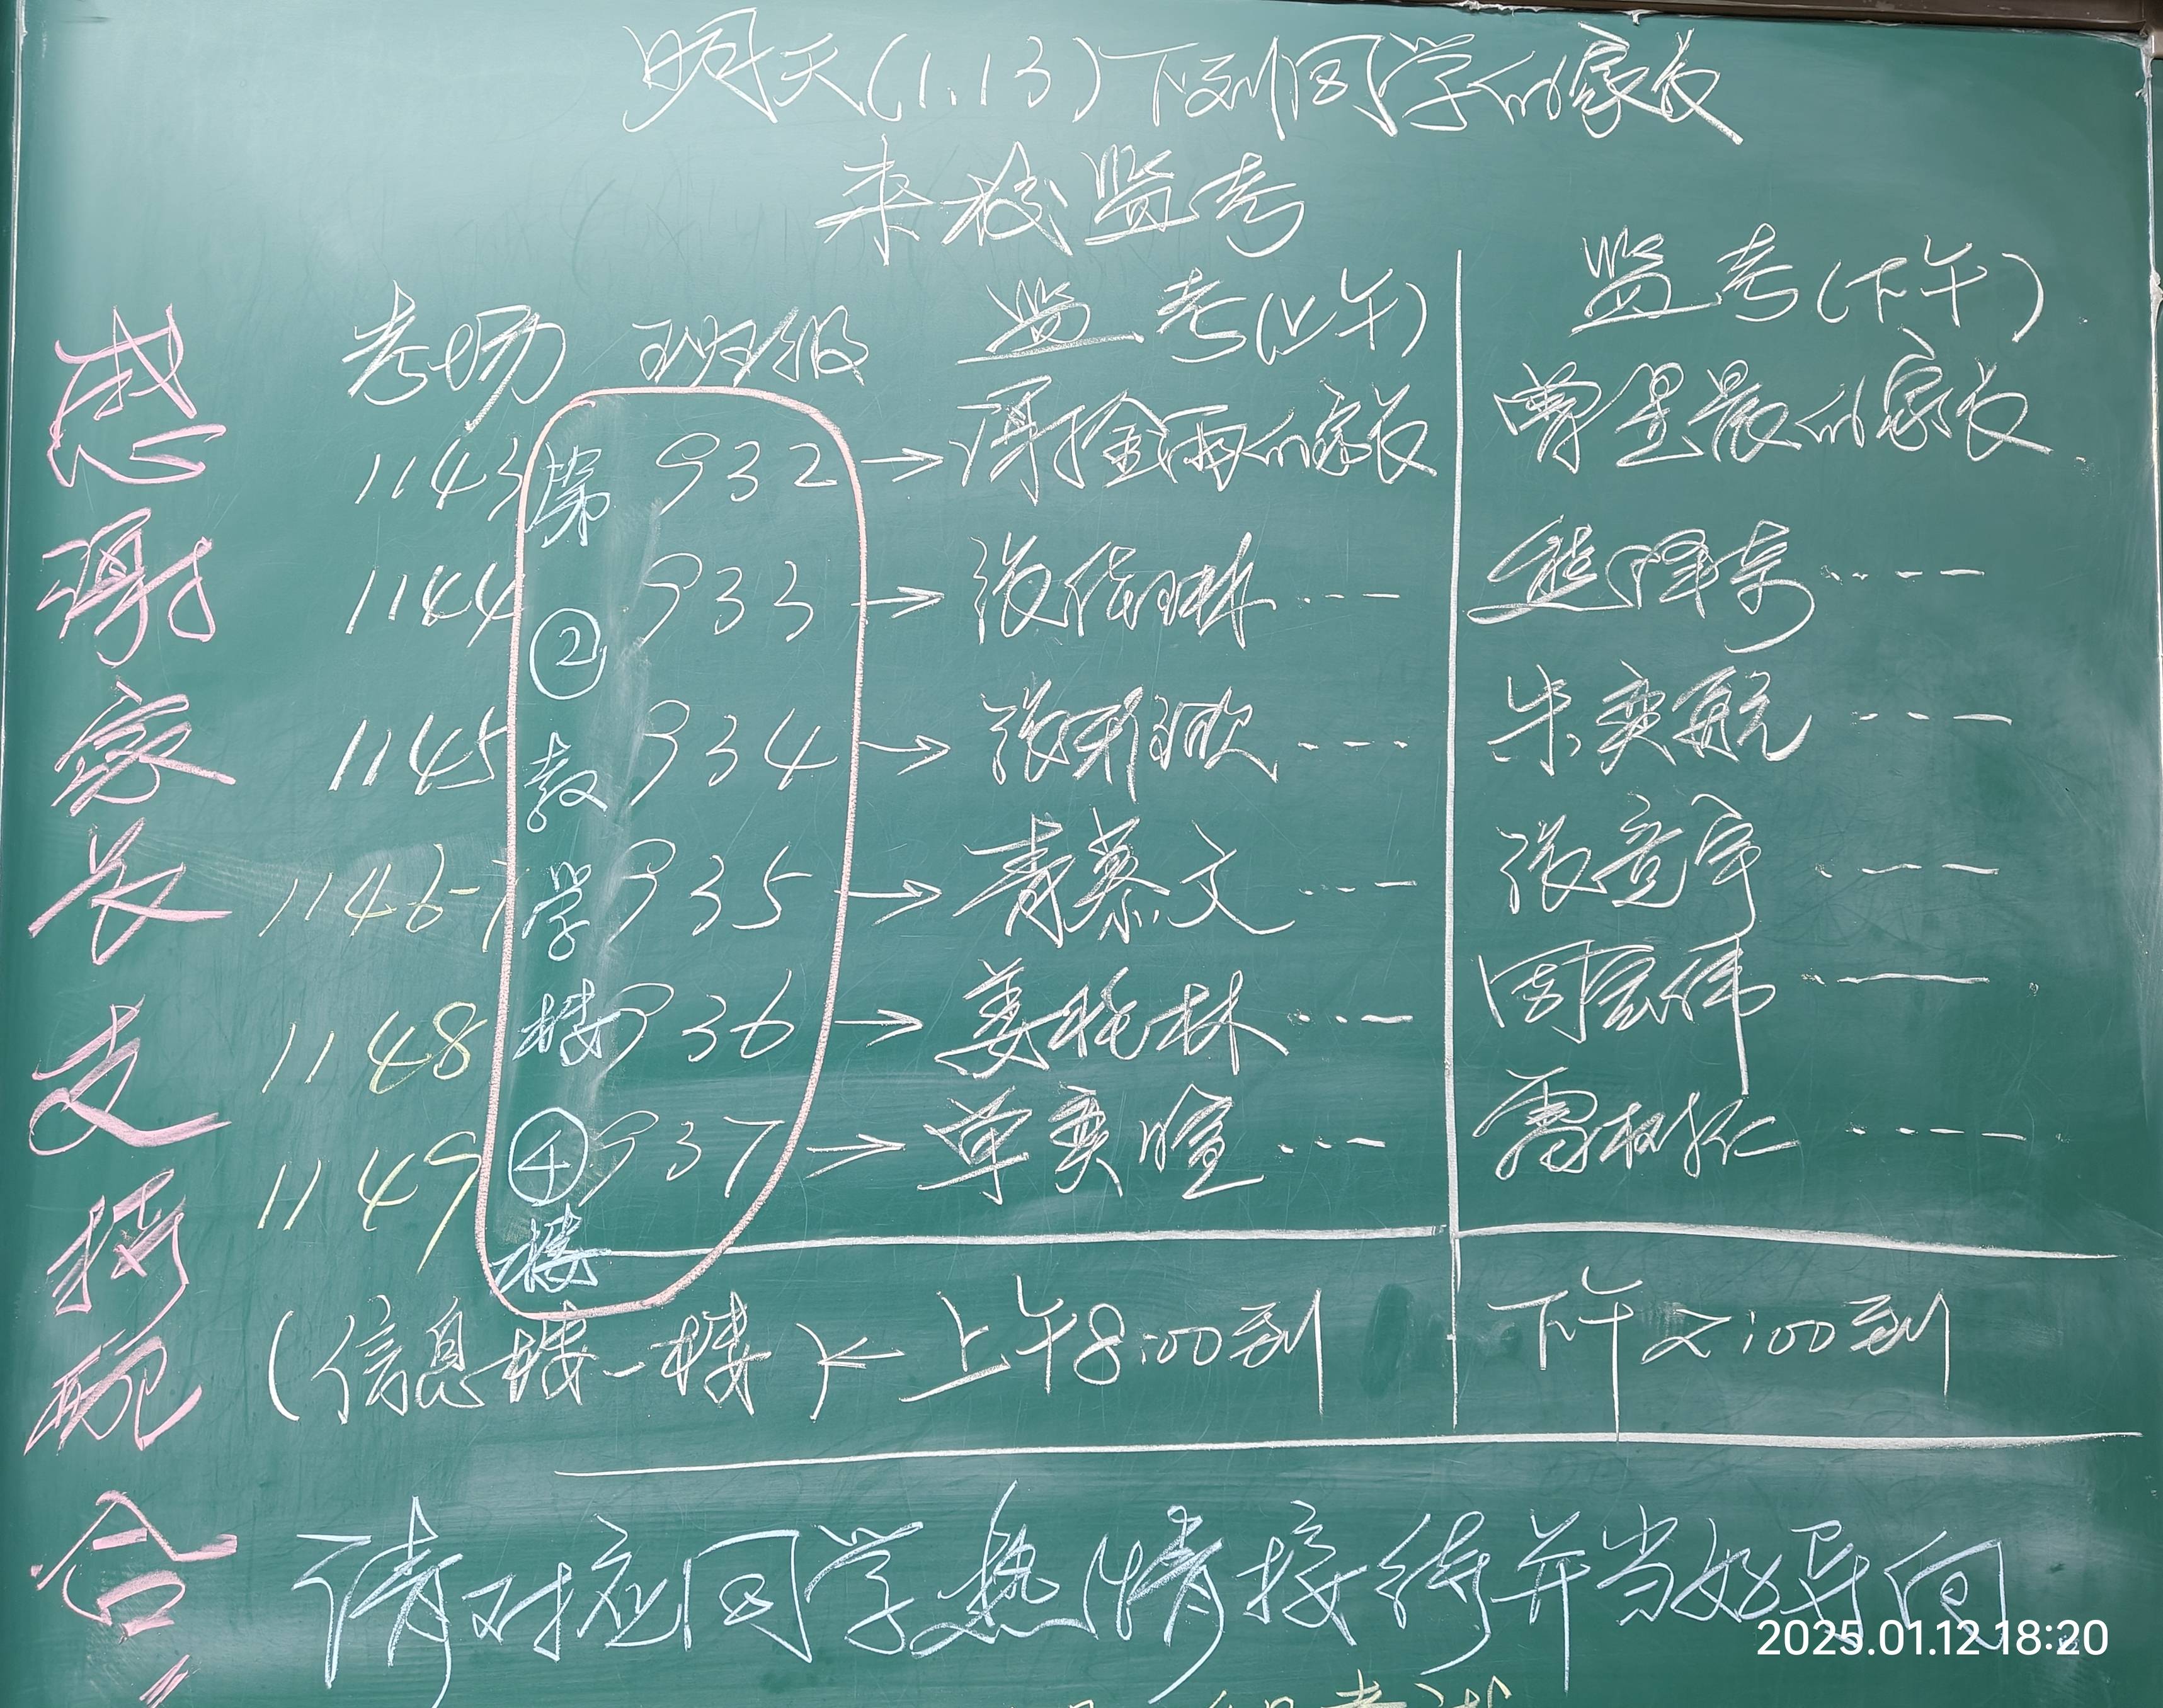 明天(1.13)下列同学的家长
来校监考
考场 班级 监考(上午) 监考(下午)
1143 932 → 雨的家长 曾星晨的家长
1144 933 → 张倩琳 ... 熊
1145 934 → 张 ... 朱奕航 ...
1146 935 → 青慕文 ... 张竞宇 ...
1148 936 → 姜 林 ... 周宏伟 ...
1149 937 → 单奕暄 ... 雷
第②教学楼④楼
(信息楼一楼) ← 上午8:00到 下午2:00到
请对应同学热情接待并当好导向
感谢家长支持配合!!
2025.01.12 18:20